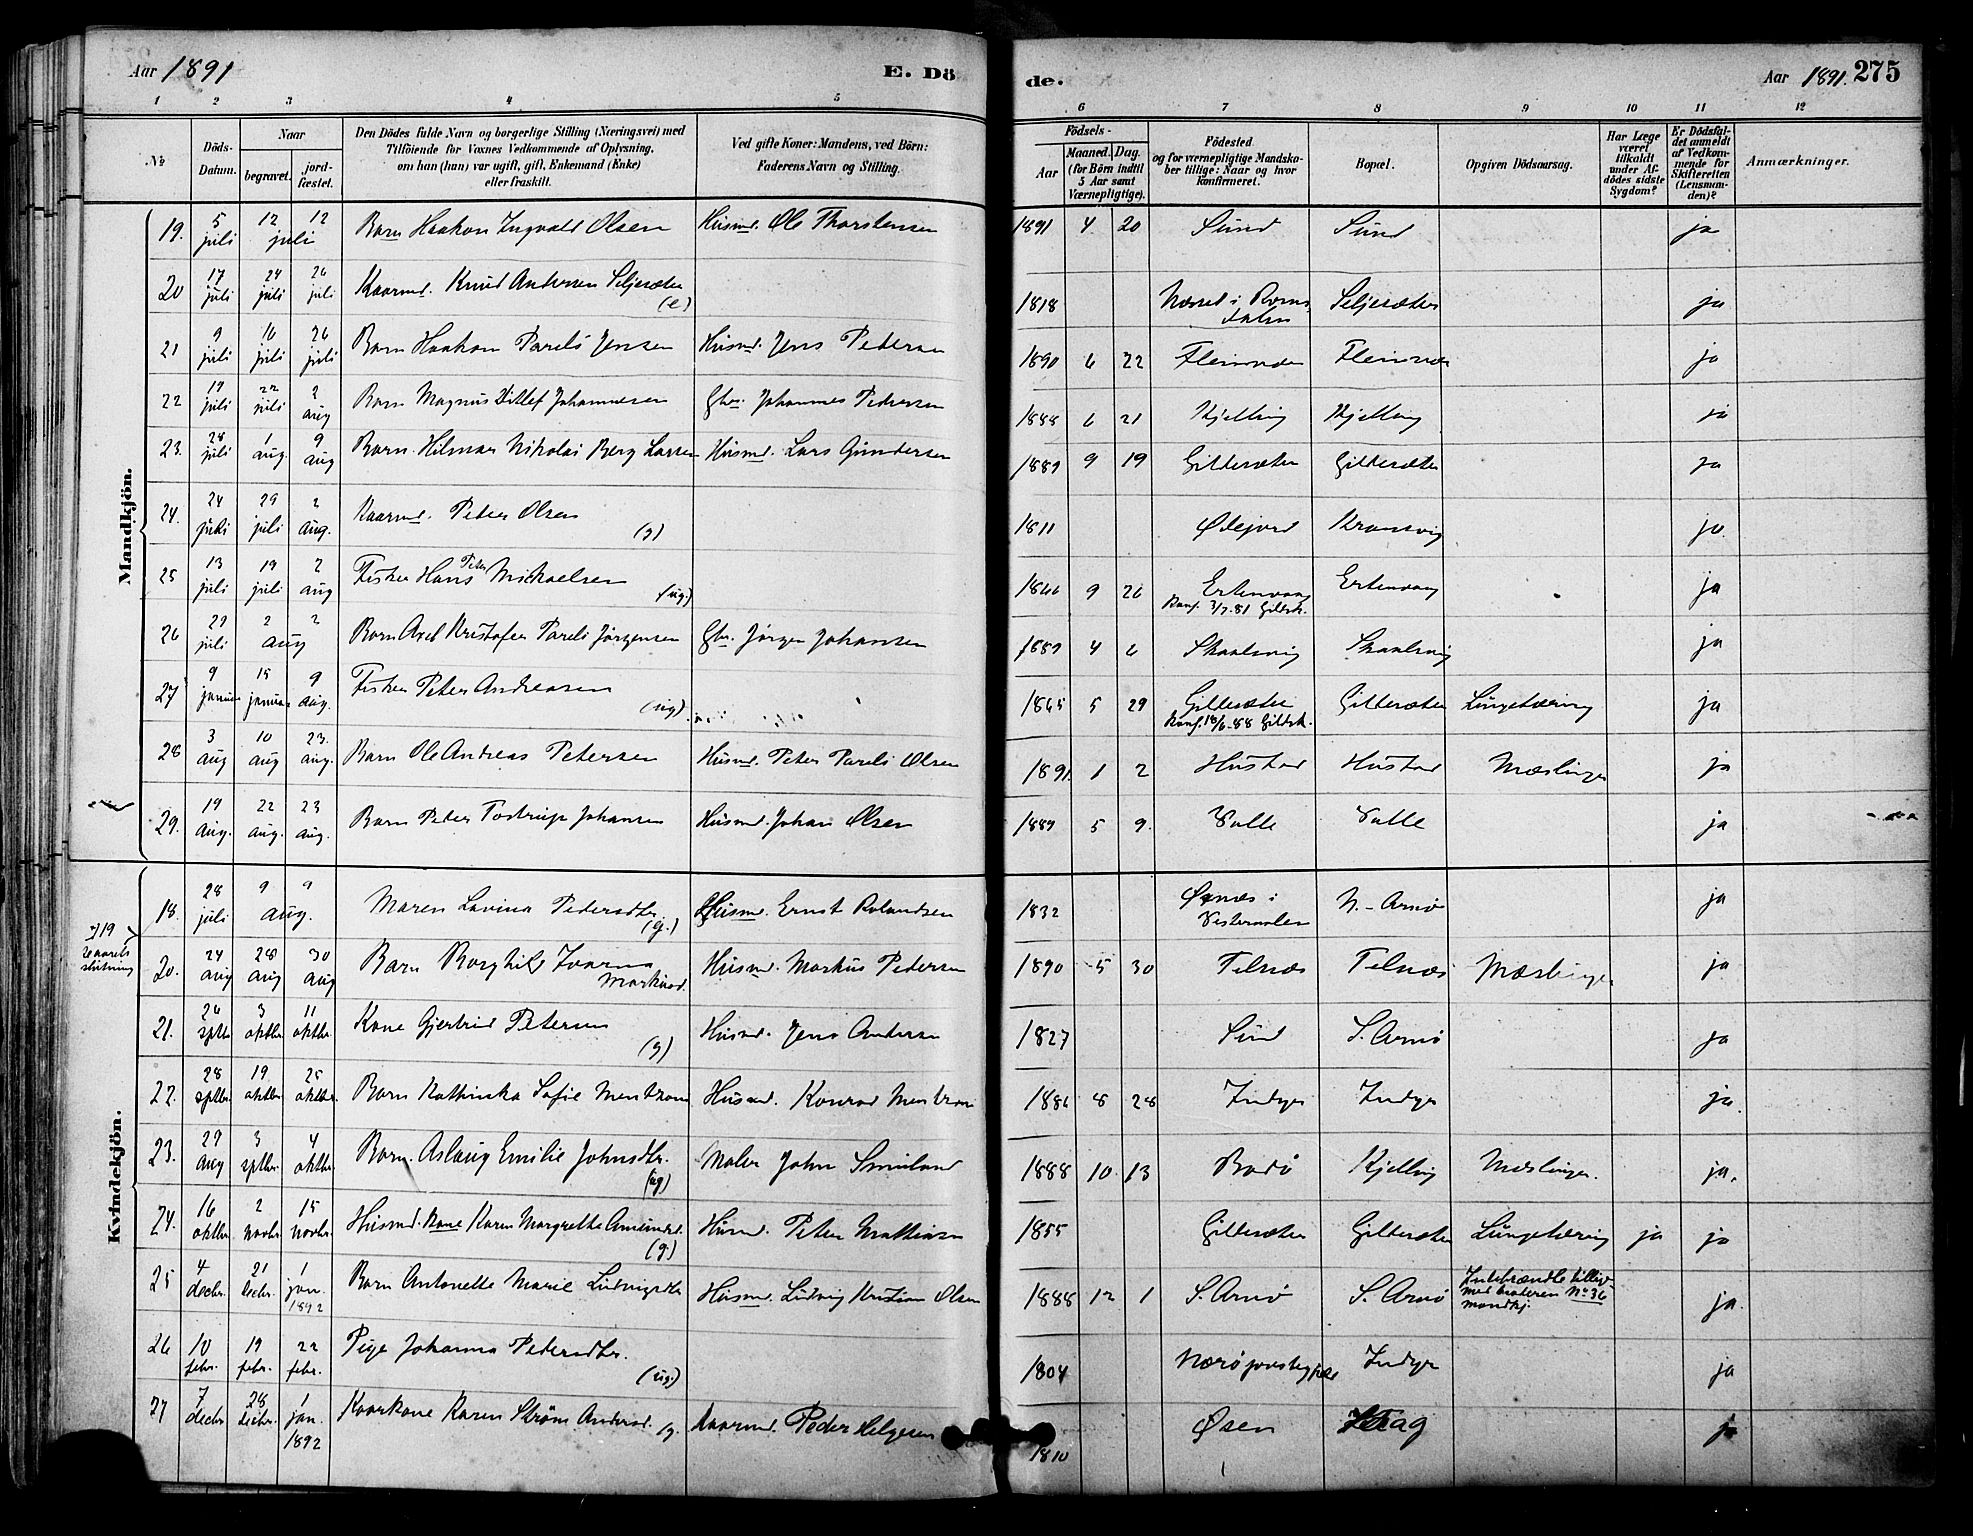 Aar 1891 E. Dö de. Aar 1891. 275
1 2 3 4 5 6 7 8 9 10 11 12
No
Döds-Datum.
Naar
begravet.
jord-fæstet.
Den Dödes fulde Navn og borgerlige Stilling (Næringsvei) med
Tilföiende for Voxnes Vedkommende af Oplysning,
om han (hun) var ugift, gift, Enkemand (Enke)
eller fraskilt.
Ved gifte Koner: Mandens, ved Börn:
Faderens Navn og Stilling.
Födsels-
Aar
Maaned. Dag.
(for Börn indtil
5 Aar samt
Værnepligtige).
Födested
og for værnepligtige Mandska-
ber tillige: Naar og hvor
konfirmeret.
Bopæl.
Opgiven Dödsaarsag.
Har Læge
været
tilkaldt
under Af-
dödes sidste
Sygdom?
Er Dödsfal-
det anmeldt
af Vedkom-
mende for
Skifteretten
(Lensman-
den)?
Anmærkninger.
Mandkjön.
19. 5 juli 12 12 juli Barn Haakon Ingvald Olsen Husmd. Ole Thorstensen 1891 4 20 Sund Sund ja
20 17 juli 24 juli 26 juli Kaarmd. Knud Andersen Seljesæter (e) 1818 Næsset i Roms-dalen Seljesæter ja
21 9 juli 16 juli 26 juli Barn Haakon Pareli Jensen Husmd. Jens Pedersen 1890 6 22 Fleinnes Fleinnes ja
22 19 juli 22 juli 2 aug Barn Magnus Ditlef Johannesen Gbr. Johannes Pedersen 1888 6 21 Kjelling Kjelling ja
23. 28 juli 1 aug. 9 aug Barn Hilmar Nikolai Berg Larsen Husmd. Lars Gundersen 1889 9 19 Gildesæter Gildesæter ja
24. 24 juli 29 juli 2 aug. Kaarmd. Peder Olsen (g) 1811 Ødejord Kransvig ja.
25 13 juli 19 juli 2 aug Fisker Hans Peter Mikaelsen (ug.) 1866 9 26 Ertenvaag Konf. 3/7.81 Gildesk. Ertenvaag ja
26 29 juli 2 2 aug Barn Axel Kristofer Pareli Jørgensen Gbr. Jørgen Johansen 1889 4 6 Skaalsvig Skaalsvig ja
27 9 januar 15 januar 9 aug. Fisker Peter Andreasen (ug) 1865 5 29 Gildesæter Konf. 18/6-88 Gildesk. Gildesæter Lungetæring ja
28 3 aug 10 aug 23. aug. Barn Ole Andreas Petersen Husmd. Peter Pareli Olsen 1891 1 2 Hustad Hustad Mæslinger ja
29. 19 aug. 22 aug. 23 aug. Barn Peder Tostrup Johansen Husmd. Johan Olsen 1889 5 9. Valle Valle ja
Kvindekjön.
18. 28 juli 9 9 aug. Maren Lovina Pedersdtr. (g.) Husmd. Ernst Rolandsen 1832 Øxnes i Vesteraalen N.-Arnø ja
19 se aarets slutning
20. 24 aug 28 aug 30 aug Barn Borghild Markusd. Husmd. Markus Pedersen 1890 5 30 Telnæs Telnæs Mæslinger ja
21. 26 sptbr 3 oktbr. 11 oktbr. Kone Gjertrud Petersen (g) Husmd. Jens Andersen 1827 Sund S. Arnø ja
22. 28 sptbr. 19 oktbr. 25 oktbr. Barn Kathinka Sofie Mentzoni Husmd. Konrad Mentzoni 1886 8 28 Indyr Indyr ja.
23. 29 aug 3 sptbr. 4 oktbr. Barn. Aslaug Emilie Johnsdtr. (ug) Maler John Smuland 1888 10 13 Bodø Kjelling Mæslinger. ja.
24. 16 oktbr. 2 novbr. 15 novbr. Husmd. kone Karen Margrethe Amundsd. (g) Husmd. Peter Mathiasen 1855 Gildesæter Gildesæter Lungetæring ja ja
25 4 decbr. 21 decbr. 1 jan. 1892 Barn Antonette Marie Ludvigsdtr Husmd. Ludvig Kristian Olsen 1888 12 1 S. Arnø S. Arnø Indebrændte tillige med broderen No 36 mandkj. ja.
26 10 febr. 19 febr. 22 febr. Pige Johanna Pedersdtr. (ug.) 1804 Nærø Indyr ja
27 7 decbr 28 decbr. 1 jan. 1892 Kaarkone Karen Strøm Andersd. g. Kaarmd. Peder Helgesen 1810 Øsen ja